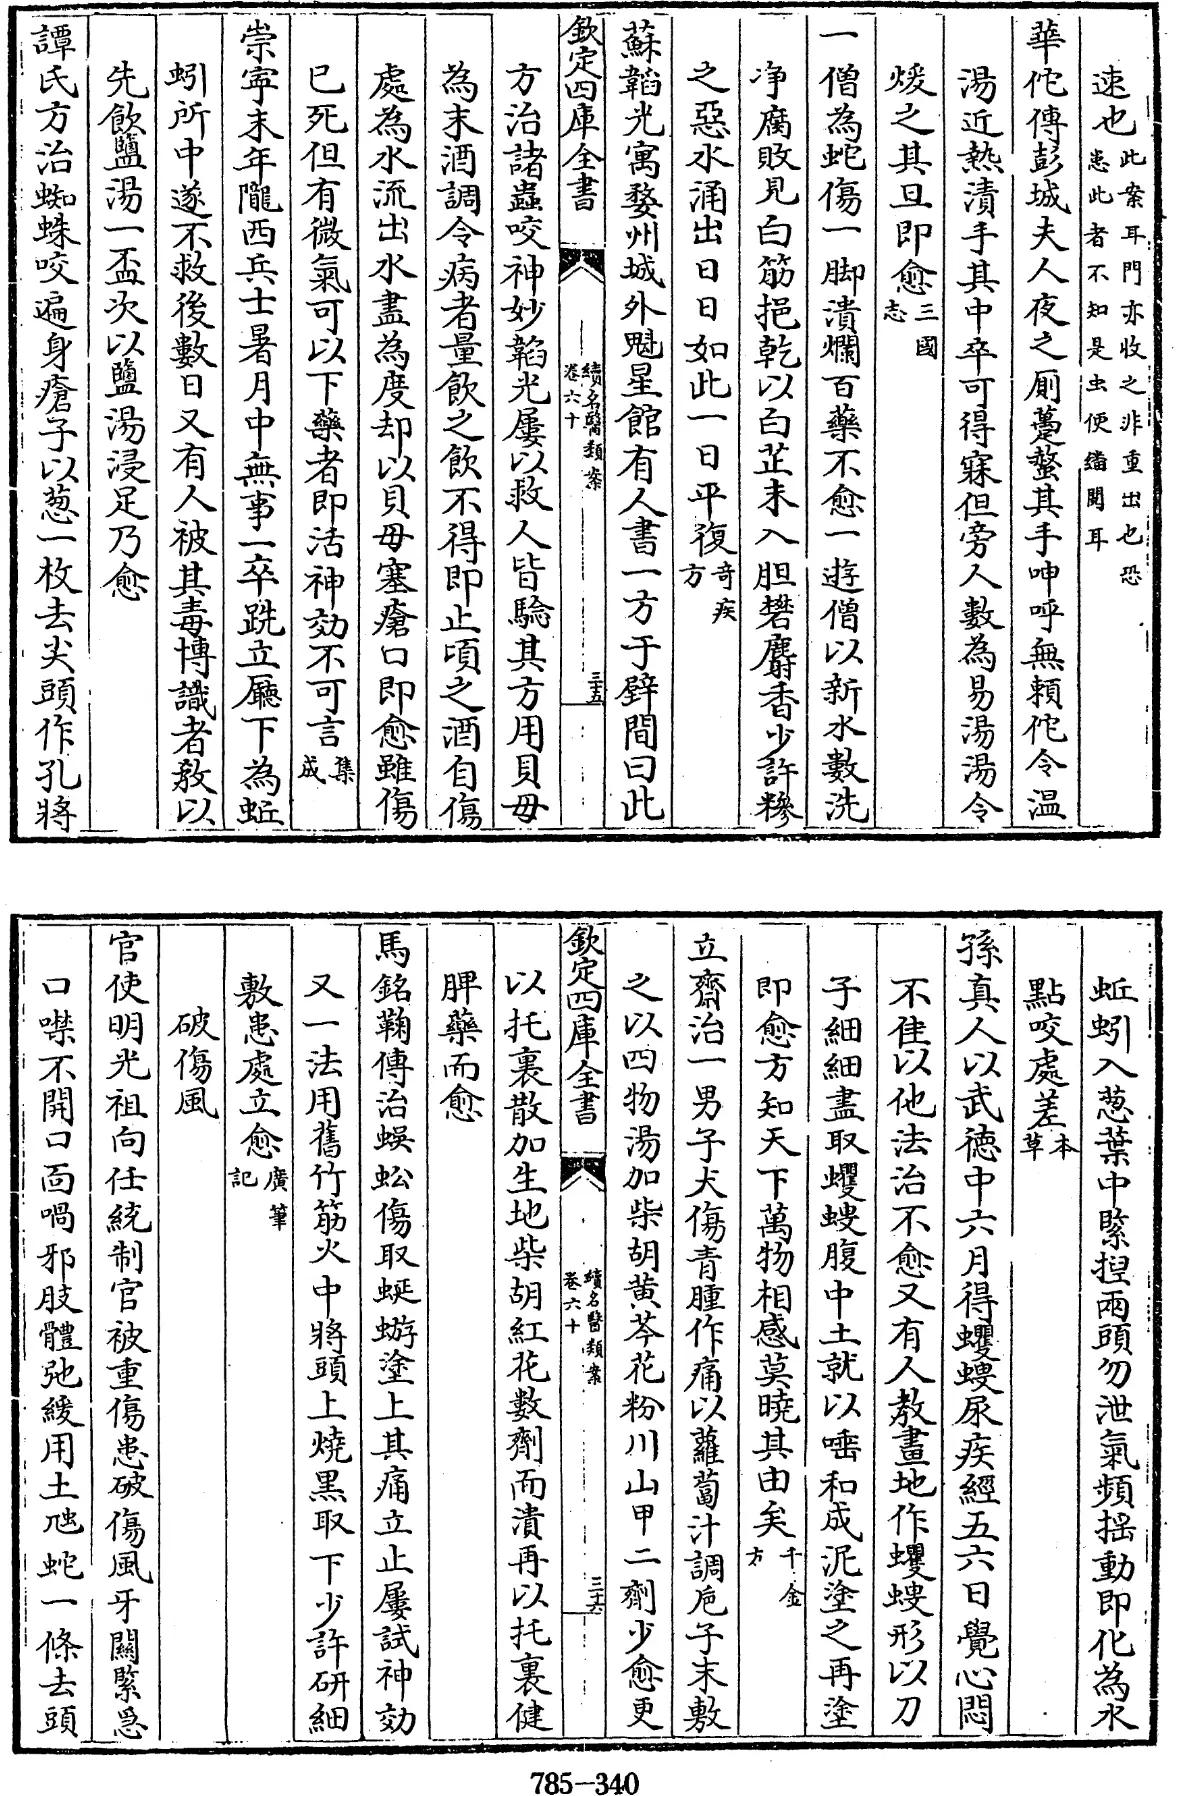 速也此案耳門亦收之非重出也恐患此者不知是虫便繙閱耳
華佗傳彭城夫人夜之厠蠆螫其手呻呼無賴佗令温
湯近熱漬手其中卒可得寐但旁人數為易湯湯令
煖之其旦即愈三國志
一僧為蛇傷一脚潰爛百藥不愈一遊僧以新水數洗
浄腐敗見白筋挹乾以白芷末入胆礬麝香少許糝
之惡水涌出日日如此一日平復奇疾方
蘇韜光寓婺州城外魁星館有人書一方于壁間曰此
欽定四庫全書 續名醫類案卷六十 三十五
方治諸蟲咬神妙韜光屢以救人皆驗其方用貝母
為末酒調令病者量飲之飲不得即止頃之酒自傷
處為水流出水盡為度却以貝母塞瘡口即愈雖傷
已死但有微氣可以下藥者即活神効不可言集成
崇寧末年隴西兵士暑月中無事一卒跣立廳下為蚯
蚓所中遂不救後數日又有人被其毒博識者教以
先飲鹽湯一盃次以鹽湯浸足乃愈
譚氏方治蜘蛛咬遍身瘡子以葱一枚去尖頭作孔將
蚯蚓入葱葉中緊揑兩頭勿泄氣頻揺動即化為水
點咬處差本草
孫真人以武德中六月得蠼螋尿疾經五六日覺心悶
不佳以他法治不愈又有人教畫地作蠼螋形以刀
子細細盡取蠼螋腹中土就以唾和成泥塗之再塗
即愈方知天下萬物相感莫曉其由矣千金方
立齋治一男子犬傷青腫作痛以蘿蔔汁調梔子末敷
之以四物湯加柴胡黄芩花粉川山甲二劑少愈更
欽定四庫全書 續名醫類案卷六十 三十六
以托裏散加生地柴胡紅花數劑而潰再以托裏健
脾藥而愈
馬銘鞠傳治蜈蚣傷取蜒蝣塗上其痛立止屢試神効
又一法用舊竹筋火中將頭上燒黒取下少許研細
敷患處立愈廣筆記
破傷風
官使明光祖向任統制官被重傷患破傷風牙關緊急
口噤不開口面喎邪肢體弛緩用土虺蛇一條去頭
785-340